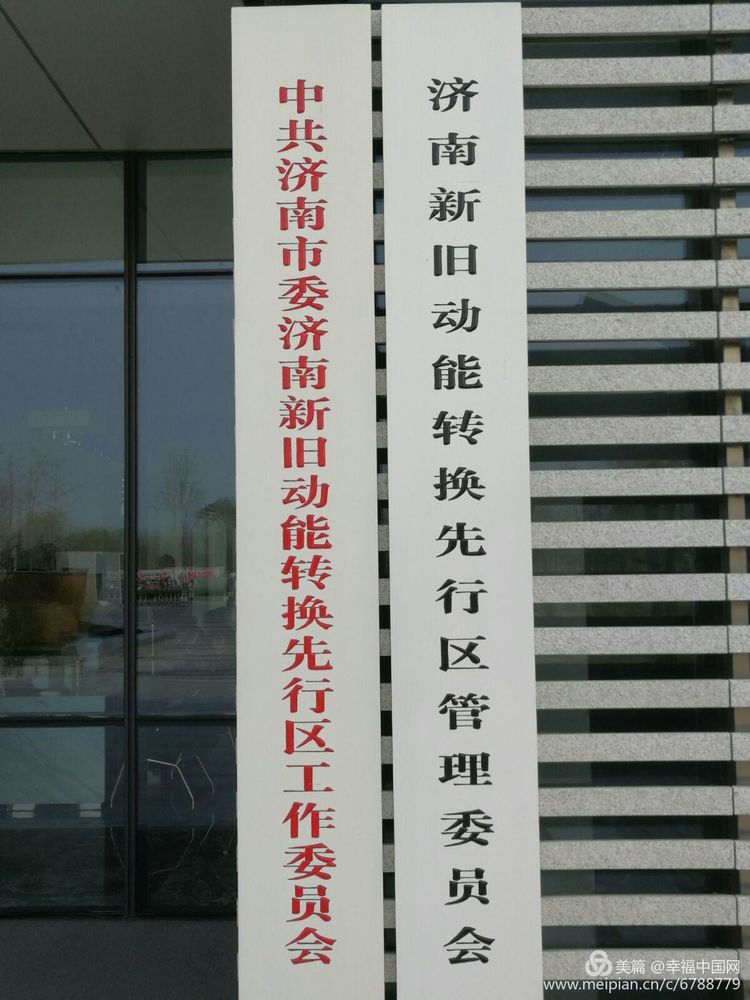 中共济南市委济南新旧动能转换先行区工作委员会
济南新旧动能转换先行区管理委员会
美篇 @幸福中国网
www.meipian.cn/c/6788779